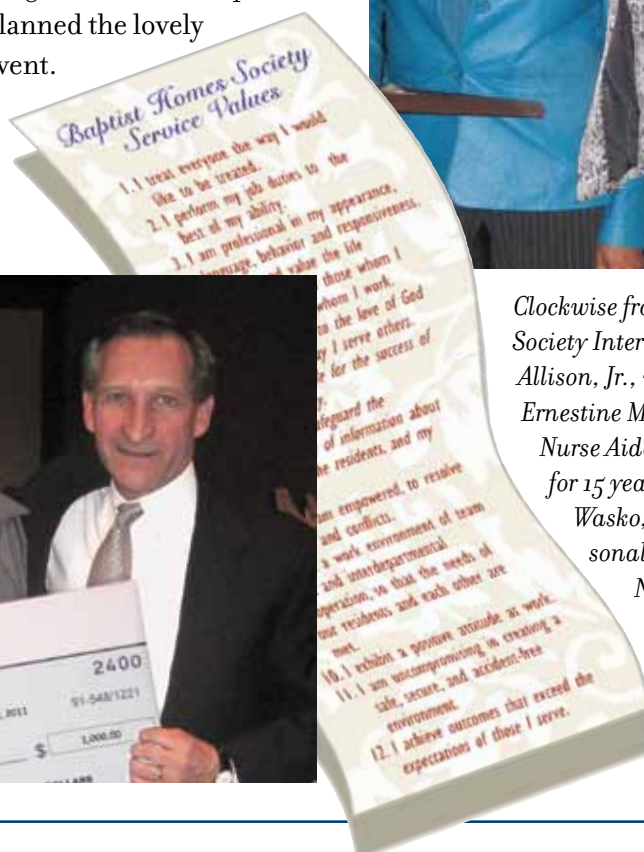 planned the lovely
event.
Baptist Homes Society
Service Values
1. I treat everyone the way I would
like to be treated.
2. I perform my job duties to the
best of my ability.
3. I am professional in my appearance,
language, behavior and responsiveness.
value the life
those whom I
whom I work.
to the love of God
I serve others.
for the success of
safeguard the
of information about
residents, and my
empowered, to resolve
and conflicts.
a work environment of team
and interdepartmental
so that the needs of
our residents and each other are
met.
10. I exhibit a positive attitude at work.
11. I am uncompromising in creating a
safe, secure, and accident-free
environment.
12. I achieve outcomes that exceed the
expectations of those I serve.
Clockwise
Society
Allison, Jr.,
Ernestine
Nurse
for 15
Wasko,
2400
2011
91-548/1221
$ 1,000.00